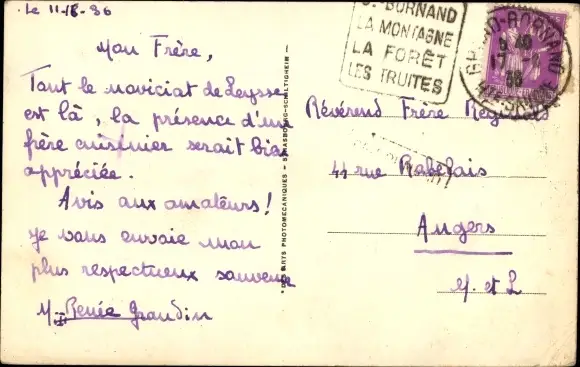 Le 11-8-36
Mon Frère,
Tout le noviciat de Leysse
est là, la présence d'un
frère cuisinier serait bien
appréciée.
Avis aux amateurs!
Je vous envoie mon
plus respectueux souvenir
M. Renée Gaudin
BORNAND
LA MONTAGNE
LA FORÊT
LES TRUITES
GRAND-BORNAND
Révérend Frère
44 rue Rabelais
Angers
M. et L
ARTS PHOTOMECANIQUES - STRASBOURG-SCHILTIGHEIM -